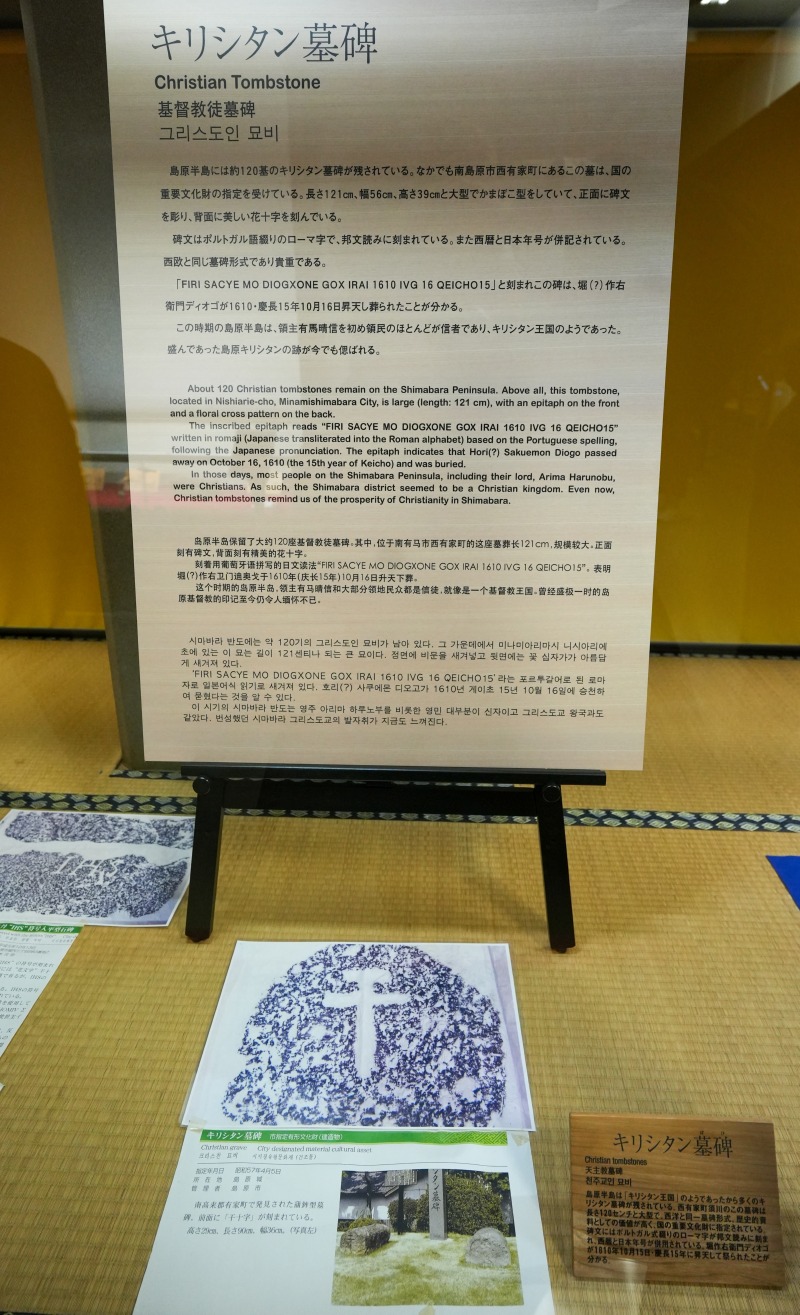 キリシタン墓碑
Christian Tombstone
基督教徒墓碑
그리스도인 묘비
島原半島には約120基のキリシタン墓碑が残されている。なかでも南島原市西有家町にあるこの墓は、国の
重要文化財の指定を受けている。長さ121㎝、幅56㎝、高さ39㎝と大型でかまぼこ型をしていて、正面に碑文
を彫り、背面に美しい花十字を刻んでいる。
碑文はポルトガル語綴りのローマ字で、邦文読みに刻まれている。また西暦と日本年号が併記されている。
西欧と同じ墓碑形式であり貴重である。
「FIRI SACYE MO DIOGXONE GOX IRAI 1610 IVG 16 QEICHO15」と刻まれこの碑は、堀(?)作右
衛門ディオゴが1610・慶長15年10月16日昇天し葬られたことが分かる。
この時期の島原半島は、領主有馬晴信を初め領民のほとんどが信者であり、キリシタン王国のようであった。
盛んであった島原キリシタンの跡が今でも偲ばれる。
About 120 Christian tombstones remain on the Shimabara Peninsula. Above all, this tombstone,
located in Nishiarie-cho, Minamishimabara City, is large (length: 121 cm), with an epitaph on the front
and a floral cross pattern on the back.
The inscribed epitaph reads "FIRI SACYE MO DIOGXONE GOX IRAI 1610 IVG 16 QEICHO15"
written in romaji (Japanese transliterated into the Roman alphabet) based on the Portuguese spelling,
following the Japanese pronunciation. The epitaph indicates that Hori(?) Sakuemon Diogo passed
away on October 16, 1610 (the 15th year of Keicho) and was buried.
In those days, most people on the Shimabara Peninsula, including their lord, Arima Harunobu,
were Christians. As such, the Shimabara district seemed to be a Christian kingdom. Even now,
Christian tombstones remind us of the prosperity of Christianity in Shimabara.
岛原半岛保留了大约120座基督教徒墓碑。其中，位于南有马市西有家町的这座墓葬长121cm，规模较大。正面
刻有碑文，背面刻有精美的花十字。
刻着用葡萄牙语拼写的日文读法"FIRI SACYE MO DIOGXONE GOX IRAI 1610 IVG 16 QEICHO15"。表明
堀(?)作右卫门迪奥戈于1610年(庆长15年)10月16日升天下葬。
这个时期的岛原半岛，领主有马晴信和大部分领地民众都是信徒，就像是一个基督教王国。曾经盛极一时的岛
原基督教的印记至今仍令人缅怀不已。
시마바라 반도에는 약 120기의 그리스도인 묘비가 남아 있다. 그 가운데에서 미나미아리마시 니시아리에
초에 있는 이 묘는 길이 121센티나 되는 큰 묘이다. 정면에 비문을 새겨넣고 뒷면에는 꽃 십자가가 아름답
게 새겨져 있다.
'FIRI SACYE MO DIOGXONE GOX IRAI 1610 IVG 16 QEICHO15'라는 포르투갈어로 된 로마
자로 일본어식 읽기로 새겨져 있다. 호리(?) 사쿠에몬 디오고가 1610년 게이초 15년 10월 16일에 승천하
여 묻혔다는 것을 알 수 있다.
이 시기의 시마바라 반도는 영주 아리마 하루노부를 비롯한 영민 대부분이 신자이고 그리스도교 왕국과도
같았다. 번성했던 시마바라 그리스도교의 발자취가 지금도 느껴진다.
キリシタン墓碑 市指定有形文化財(建造物)
Christian grave City designated material cultural asset
指定年月日 昭和57年4月5日
所在地 島原城
管理者 島原市
南高来郡有家町で発見された蒲鉾型墓
碑。前面に「干十字」が刻まれている。
高さ29㎝、長さ90㎝、幅36㎝。(写真左)
タン墓碑
キリシタン墓碑
Christian tombstones
天主教墓碑
천주교인 묘비
島原半島は「キリシタン王国」のようであったから多くのキ
リシタン墓碑が残されている。西有家町須川のこの墓碑は
長さ120センチと大型で、西洋と同一墓碑形式。歴史的資
料としての価値が高く、国の重要文化財に指定されている。
碑文にはポルトガル式綴りのローマ字が邦文読みに刻ま
れ、西暦と日本年号が併用されている。堀作右衛門ディオゴ
が1610年10月15日・慶長15年に昇天して葬られたことが
分かる